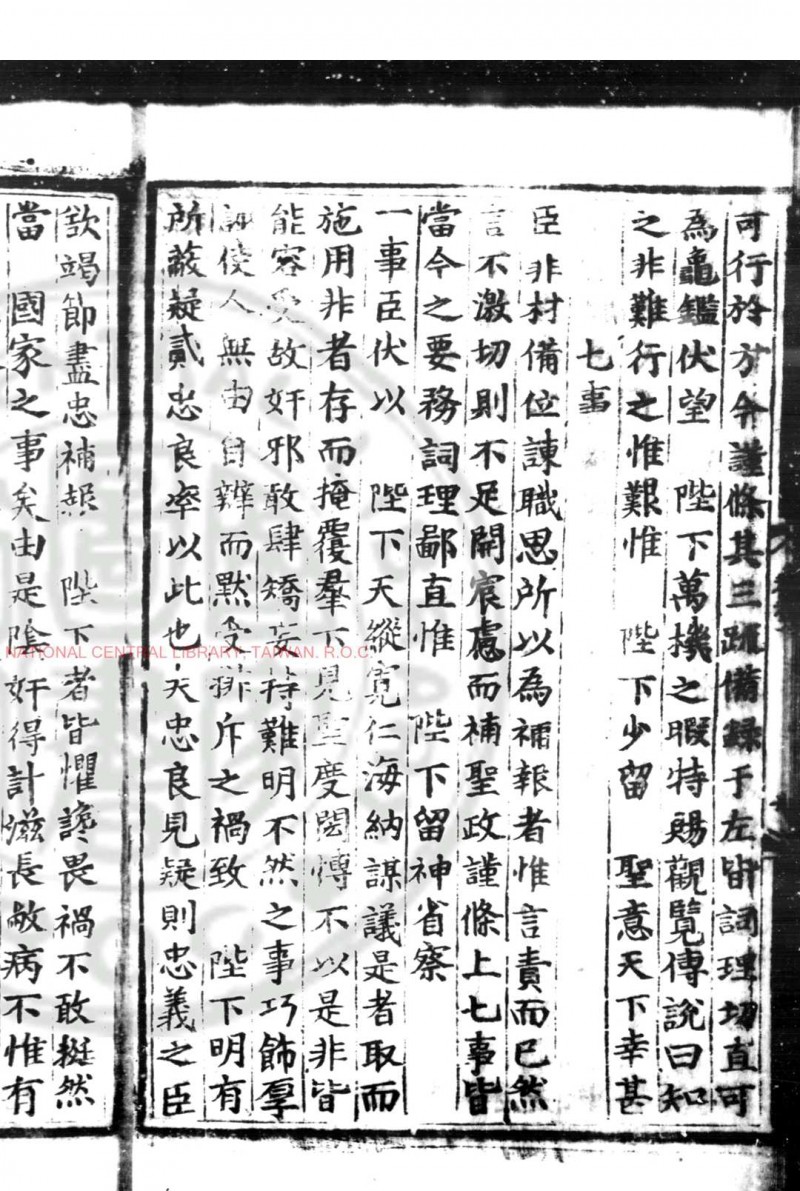 可行於方今謹條其三疏備錄于左皆詞理切直可
為龜鑑伏望　陛下萬機之暇特賜觀覽傳說曰知
之非難行之惟艱惟　陛下少留　聖意天下幸甚
七事
臣非材備位諫職思所以為補報者惟言責而已然
言不激切則不足開宸慮而補聖政謹條上七事皆
當今之要務詞理鄙直惟　陛下留神省察
一事臣伏以　陛下天縱寬仁海納謀議是者取而
施用非者存而掩覆羣下見聖度閎博不以是非皆
能容受故奸邪敢肆矯妄特難明不然之事巧飾厚
誣使人無由自辨而默受排斥之禍致　陛下明有
所蔽疑貳忠良率以此也夫忠良見疑則忠義之臣
欲竭節盡忠補報　陛下者皆懼讒畏禍不敢挺然
當　國家之事矣由是陰奸得計滋長敝病不惟有
NATIONAL CENTRAL LIBRARY, TAIWAN. R.O.C.